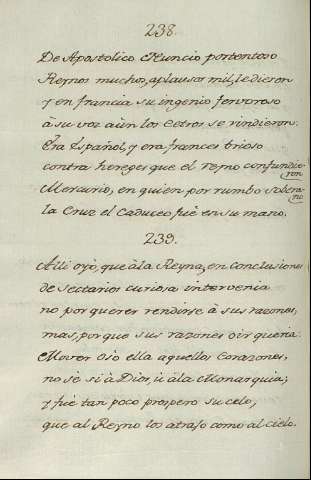 238.
De Apostolico Nuncio portentoso
Reynos muchos, aplausos mil, le dieron
y en francia su ingenio fervoroso
à su voz aùn los Cetros se rindieron.
Era Español, y era frances brioso
contra hereges que el reyno confundieron
Mercurio, en quien por rumbo soberano
la Cruz el Caduceo fuè en su mano.
239.
Alli oyò, que à la Reyna, en Conclusiones
de sectarios curiosa intervenia
no por querer rendirse à sus razones,
mas, porque sus razones oir queria.
Mover osò ella aquellos Corazones,
no sè si à Dios, ù à la Monarquia;
y fuè tan poco prospero su celo,
que al Reyno, los atrajo como al cielo.